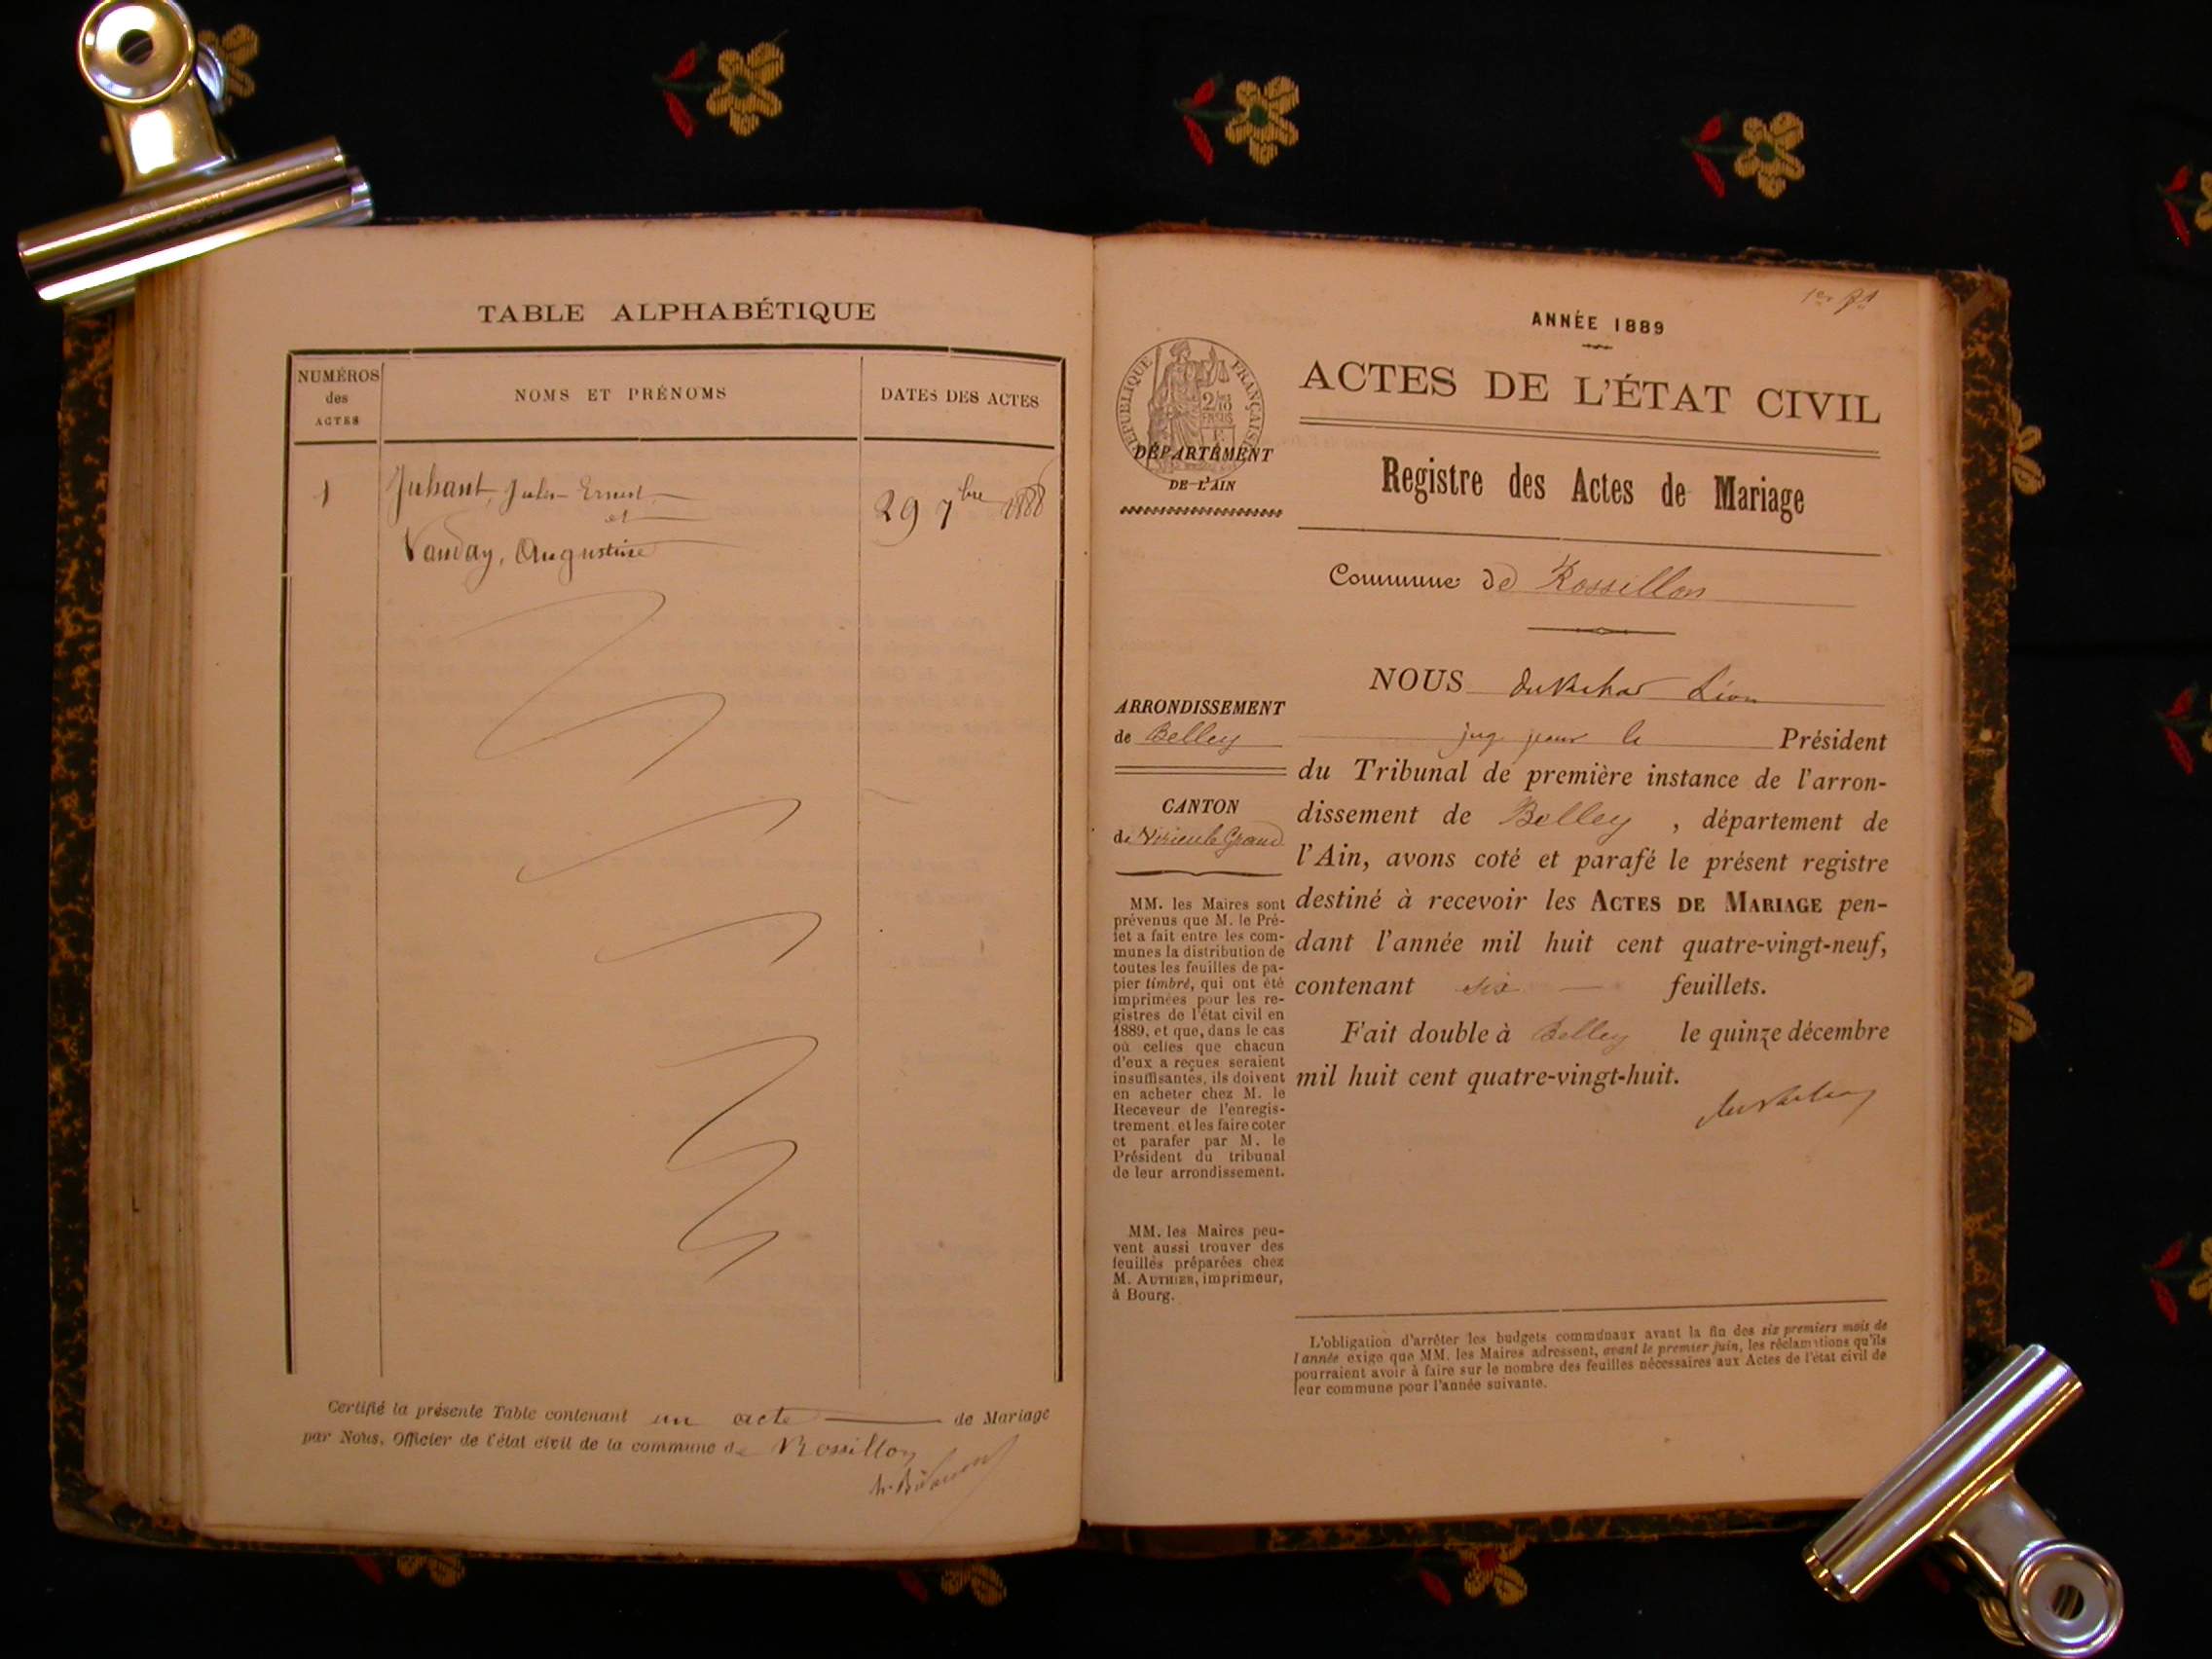 TABLE ALPHABÉTIQUE
NUMÉROS
des
ACTES
NOMS ET PRÉNOMS
DATES DES ACTES
1
Juhant, Jules Ernest
et
Vanday, Augustine
29 7bre 1888
Certifié la présente Table contenant un acte de Mariage
par Nous, Officier de l'état civil de la commune de Rossillon
ANNÉE 1889
ACTES DE L'ÉTAT CIVIL
RÉPUBLIQUE FRANÇAISE
DÉPARTEMENT
DE L'AIN
Registre des Actes de Mariage
Commune de Rossillon
ARRONDISSEMENT
de Belley
CANTON
de Virieu le Grand
MM. les Maires sont
prévenus que M. le Pré-
fet a fait entre les com-
munes la distribution de
toutes les feuilles de pa-
pier timbré, qui ont été
imprimées pour les re-
gistres de l'état civil en
1889, et que, dans le cas
où celles que chacun
d'eux a reçues seraient
insuffisantes, ils doivent
en acheter chez M. le
Receveur de l'enregis-
trement et les faire coter
et parafer par M. le
Président du tribunal
de leur arrondissement.
MM. les Maires peu-
vent aussi trouver des
feuilles préparées chez
M. AUTHIER, imprimeur,
à Bourg.
NOUS Léon
juge pour le Président
du Tribunal de première instance de l'arron-
dissement de Belley, département de
l'Ain, avons coté et parafé le présent registre
destiné à recevoir les ACTES DE MARIAGE pen-
dant l'année mil huit cent quatre-vingt-neuf,
contenant six feuillets.
Fait double à Belley le quinze décembre
mil huit cent quatre-vingt-huit.
L'obligation d'arrêter les budgets communaux avant la fin des six premiers mois de
l'année exige que MM. les Maires adressent, avant le premier juin, les réclamations qu'ils
pourraient avoir à faire sur le nombre des feuilles nécessaires aux Actes de l'état civil de
leur commune pour l'année suivante.